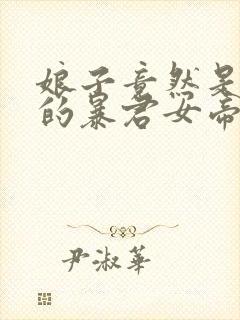 娘子竟然是
的暴君女帝
尹淑华